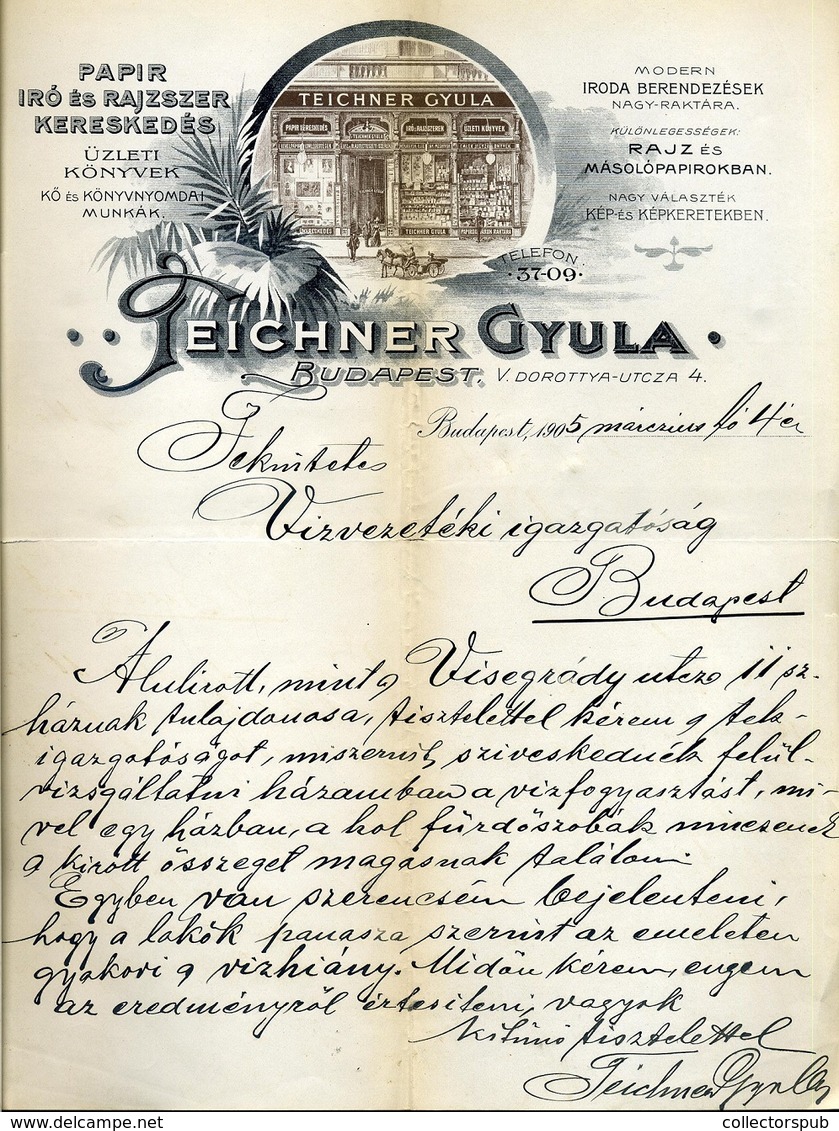 PAPIR
IRÓ ÉS RAJZSZER
KERESKEDÉS
ÜZLETI
KÖNYVEK
KŐ ÉS KÖNYVNYOMDAI
MUNKÁK.
TEICHNER GYULA
PAPIR KERESKEDÉS
TEICHNER GYULA
IRÓ & RAJZSZEREK
ÜZLETI KÖNYVEK
TEICHNER GYULA
MODERN
IRODA BERENDEZÉSEK
NAGY-RAKTÁRA.
KÜLÖNLEGESSÉGEK:
RAJZ ÉS
MÁSOLÓPAPIROKBAN.
NAGY VÁLASZTÉK
KÉP-ÉS KÉPKERETEKBEN.
TELEFON.
·37-09·
TEICHNER GYULA
BUDAPEST, V. DOROTTYA-UTCZA 4.
Budapest, 1905 márczius hó 4én
Tekintetes
Vizvezetéki igazgatóság
Budapest
Alulirott, mint a Visegrády utcza 11 sz.
háznak tulajdonosa, tisztelettel kérem a tek-
igazgatóságot, miszerint sziveskednék felül-
vizsgáltatni házamban a vizfogyasztást, mi-
vel egy házban, a hol fürdőszobák nincsenek
a kirótt összeget magasnak találom.
Egyben van szerencsém bejelenteni,
hogy a lakók panasza szerint az emeleten
gyakori a vizhiány. Midőn kérem, engem
az eredményről értesiteni, vagyok
kitünő tisztelettel
Teichner Gyula
delcampe.net
collectorspub